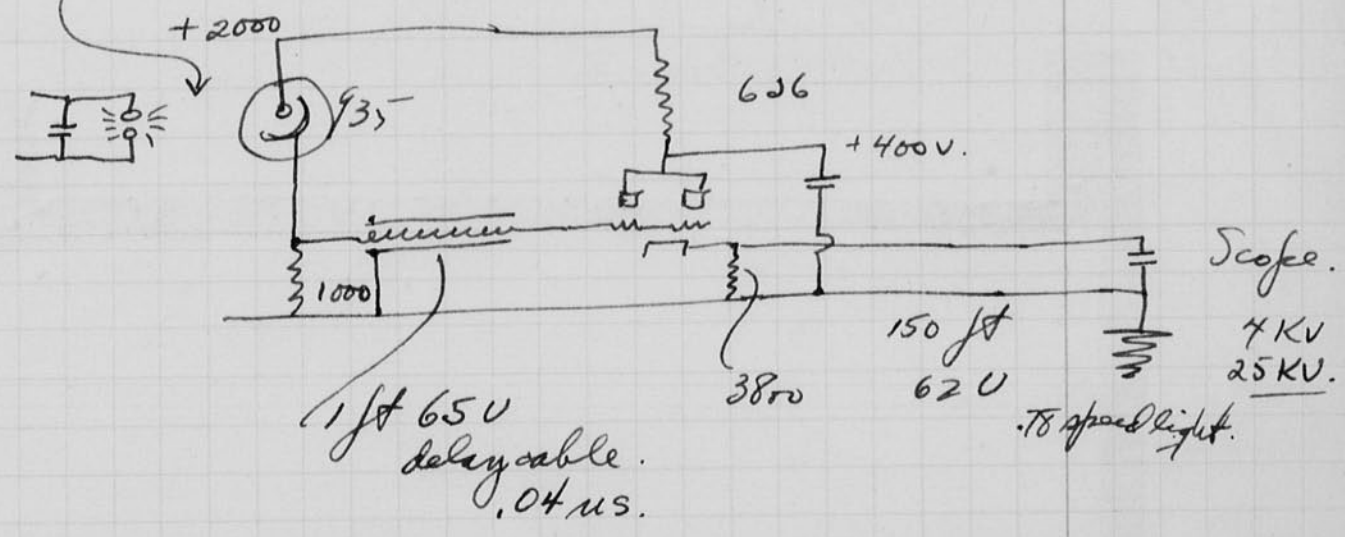 + 2000
935
6J6
+ 400 v.
1000
Scope.
4 KV
25 KV.
150 ft
62 U
.78 speed light.
3800
1 ft 65 U
delay cable.
.04 us.